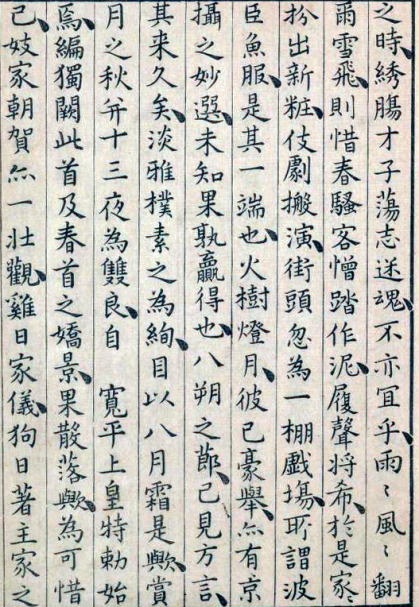 之時、綉膓才子蕩志迷魂、不亦冝乎、雨〻風〻翻
雨雪飛、則惜春騷客憎踏作泥、履聲将希、於是家〻
扮出新粧、伎劇搬演、街頭忽為一棚戯塲、所謂波
臣魚服、是其一端也、火樹燈月、彼已豪舉、亦有京
攝之妙選、未知果孰贏得也、八朔之莭、已見方言、
其来久矣、淡雅樸素之為絢、目以八月霜是歟、賞
月之秋并十三夜為雙良、自　寛平上皇特勅始
焉、編獨闕此首及春首之嬌景、果散落歟、為可惜
已、妓家朝賀亦一壮觀、雞日家儀、狗日著主家之